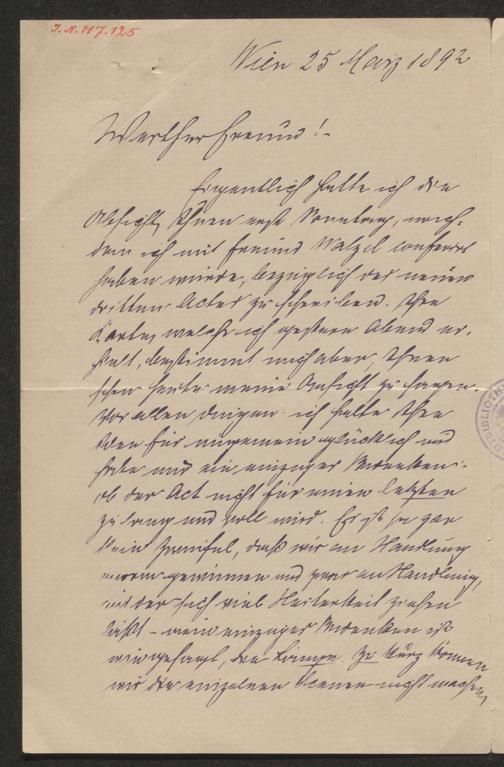 J. N. 117.125
Wien 25 März 1892
Werther Freund!-
Eigentlich hatte ich die
Absicht, Ihnen erst Sonntag, nach-
dem ich mit Freund Walzel conferirt
haben würde, bezüglich des neuen
dritten Actes zu schreiben. Ihre
Karte, welche ich gestern Abend er-
hielt, bestimmt mich aber, Ihnen
schon heute meine Ansicht zu sagen.
Vor allen Dingen: ich halte Ihre
Idee für ungemein glücklich und
habe nur ein einziges Bedenken:-
ob der Act nicht für einen letzten
zu lang und voll wird. Es ist ja gar
kein Zweifel, daß wir an Handlung
enorm gewinnen und zwar an Handlung,
aus der sich viel Heiterkeit ziehen
läßt - mein einziges Bedenken ist
wie gesagt, die Länge. Zu kurz können
wir die einzelnen Scenen nicht machen,
BIBLIOTHE